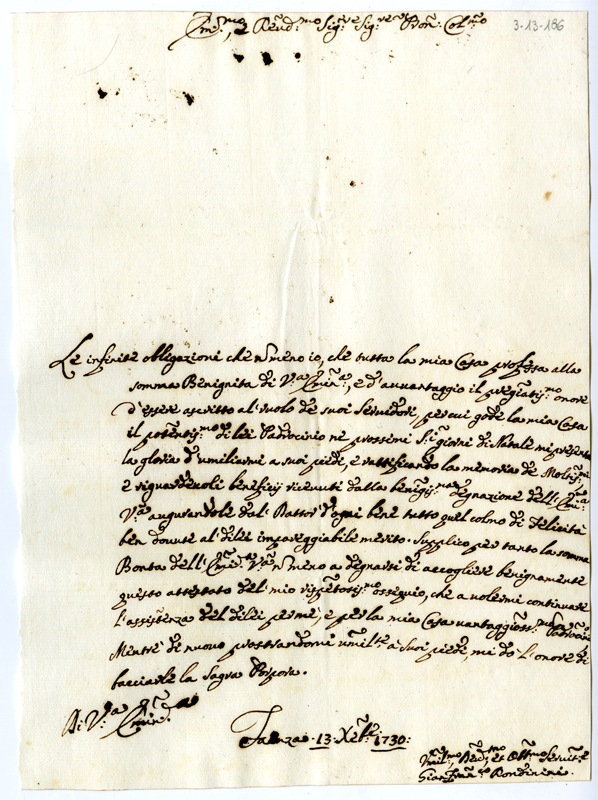 Em.mo, e Reud.mo Sig.re Sig.re Pron. Col.mo
3-13-186
Le infinite obligazioni che nõ meno io, che tutta la mia Casa professa alla
somma Benignita di V.a Emin.a, e d'auuantaggio il pregiatiss.mo onore
d'essere ascritto al ruolo de suoi Seruidori, per cui gode la mia Casa
il potentiss.mo di lei Padrocinio ne prossimi S.ti giorni di Natale mi presenta
la gloria d'umiliarmi a suoi piedi, e rattificando la memoria de Moltiss.mi
e riguardeuoli beneficij riceuuti dalla benigniss.ma degnazione dell' Emin.a
V.a augurandole dal Dattor d'ogni bene tutto quel colmo di felicità
ben douute al di lei impareggiabile merito. Supplico per tanto la somma
Bontà dell' Emin.a V.a nõ meno a degnarsi di accogliere benignamente
questo attestato del mio rispettosiss.mo ossequio, che a uolermi continuare
L'assistenza del di lei per me, e per la mia Casa uantaggioss.mo Padrocinio
Mentre di nuouo prostrandomi umil.te a Suoi piedi, mi do l'onore di
bacciarle la Sagra Porpora.
Di V.a Emin.a
Faenza 13 Xbre 1730:
Umil.mo Deu.mo et Obb.mo Seruit.e
Gio: Rondinini